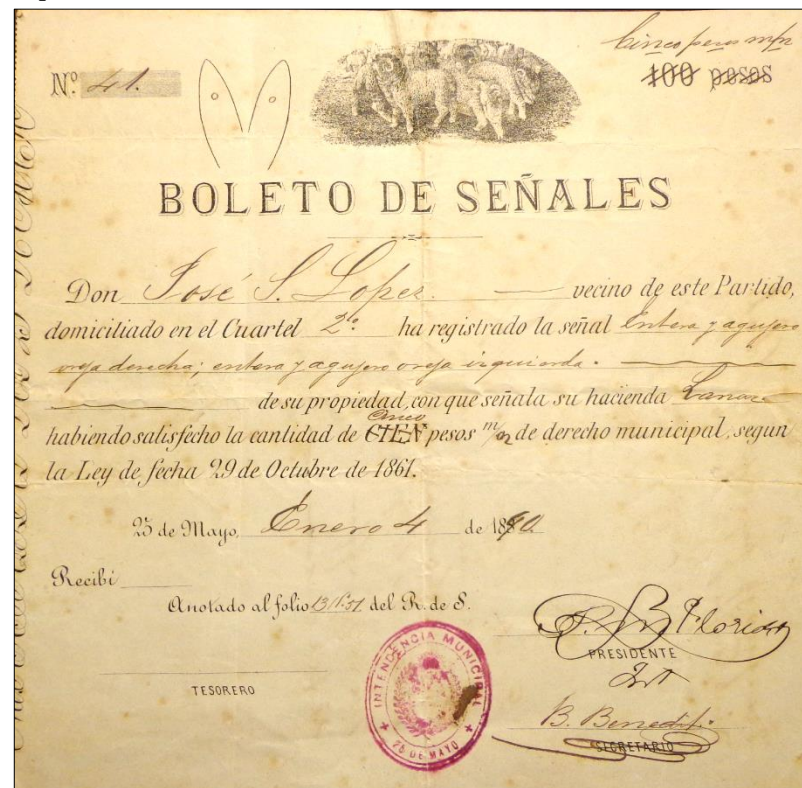 Cinco pesos m/n
Nº 41.
100 pesos
BOLETO DE SEÑALES
Don José S. Lopez. vecino de este Partido,
domiciliado en el Cuartel 2º. ha registrado la señal Entera y agujero
oreja derecha; entera y agujero oreja izquierda.
de su propiedad, con que señala su hacienda Lanar
Cinco
habiendo satisfecho la cantidad de CIEN pesos m/n de derecho municipal, segun
la Ley de fecha 29 de Octubre de 1861.
25 de Mayo, Enero 4 de 1890.
Recibi
Anotado al folio del R. de S.
PRESIDENTE
TESORERO
INTENDENCIA MUNICIPAL
25 DE MAYO
SECRETARIO